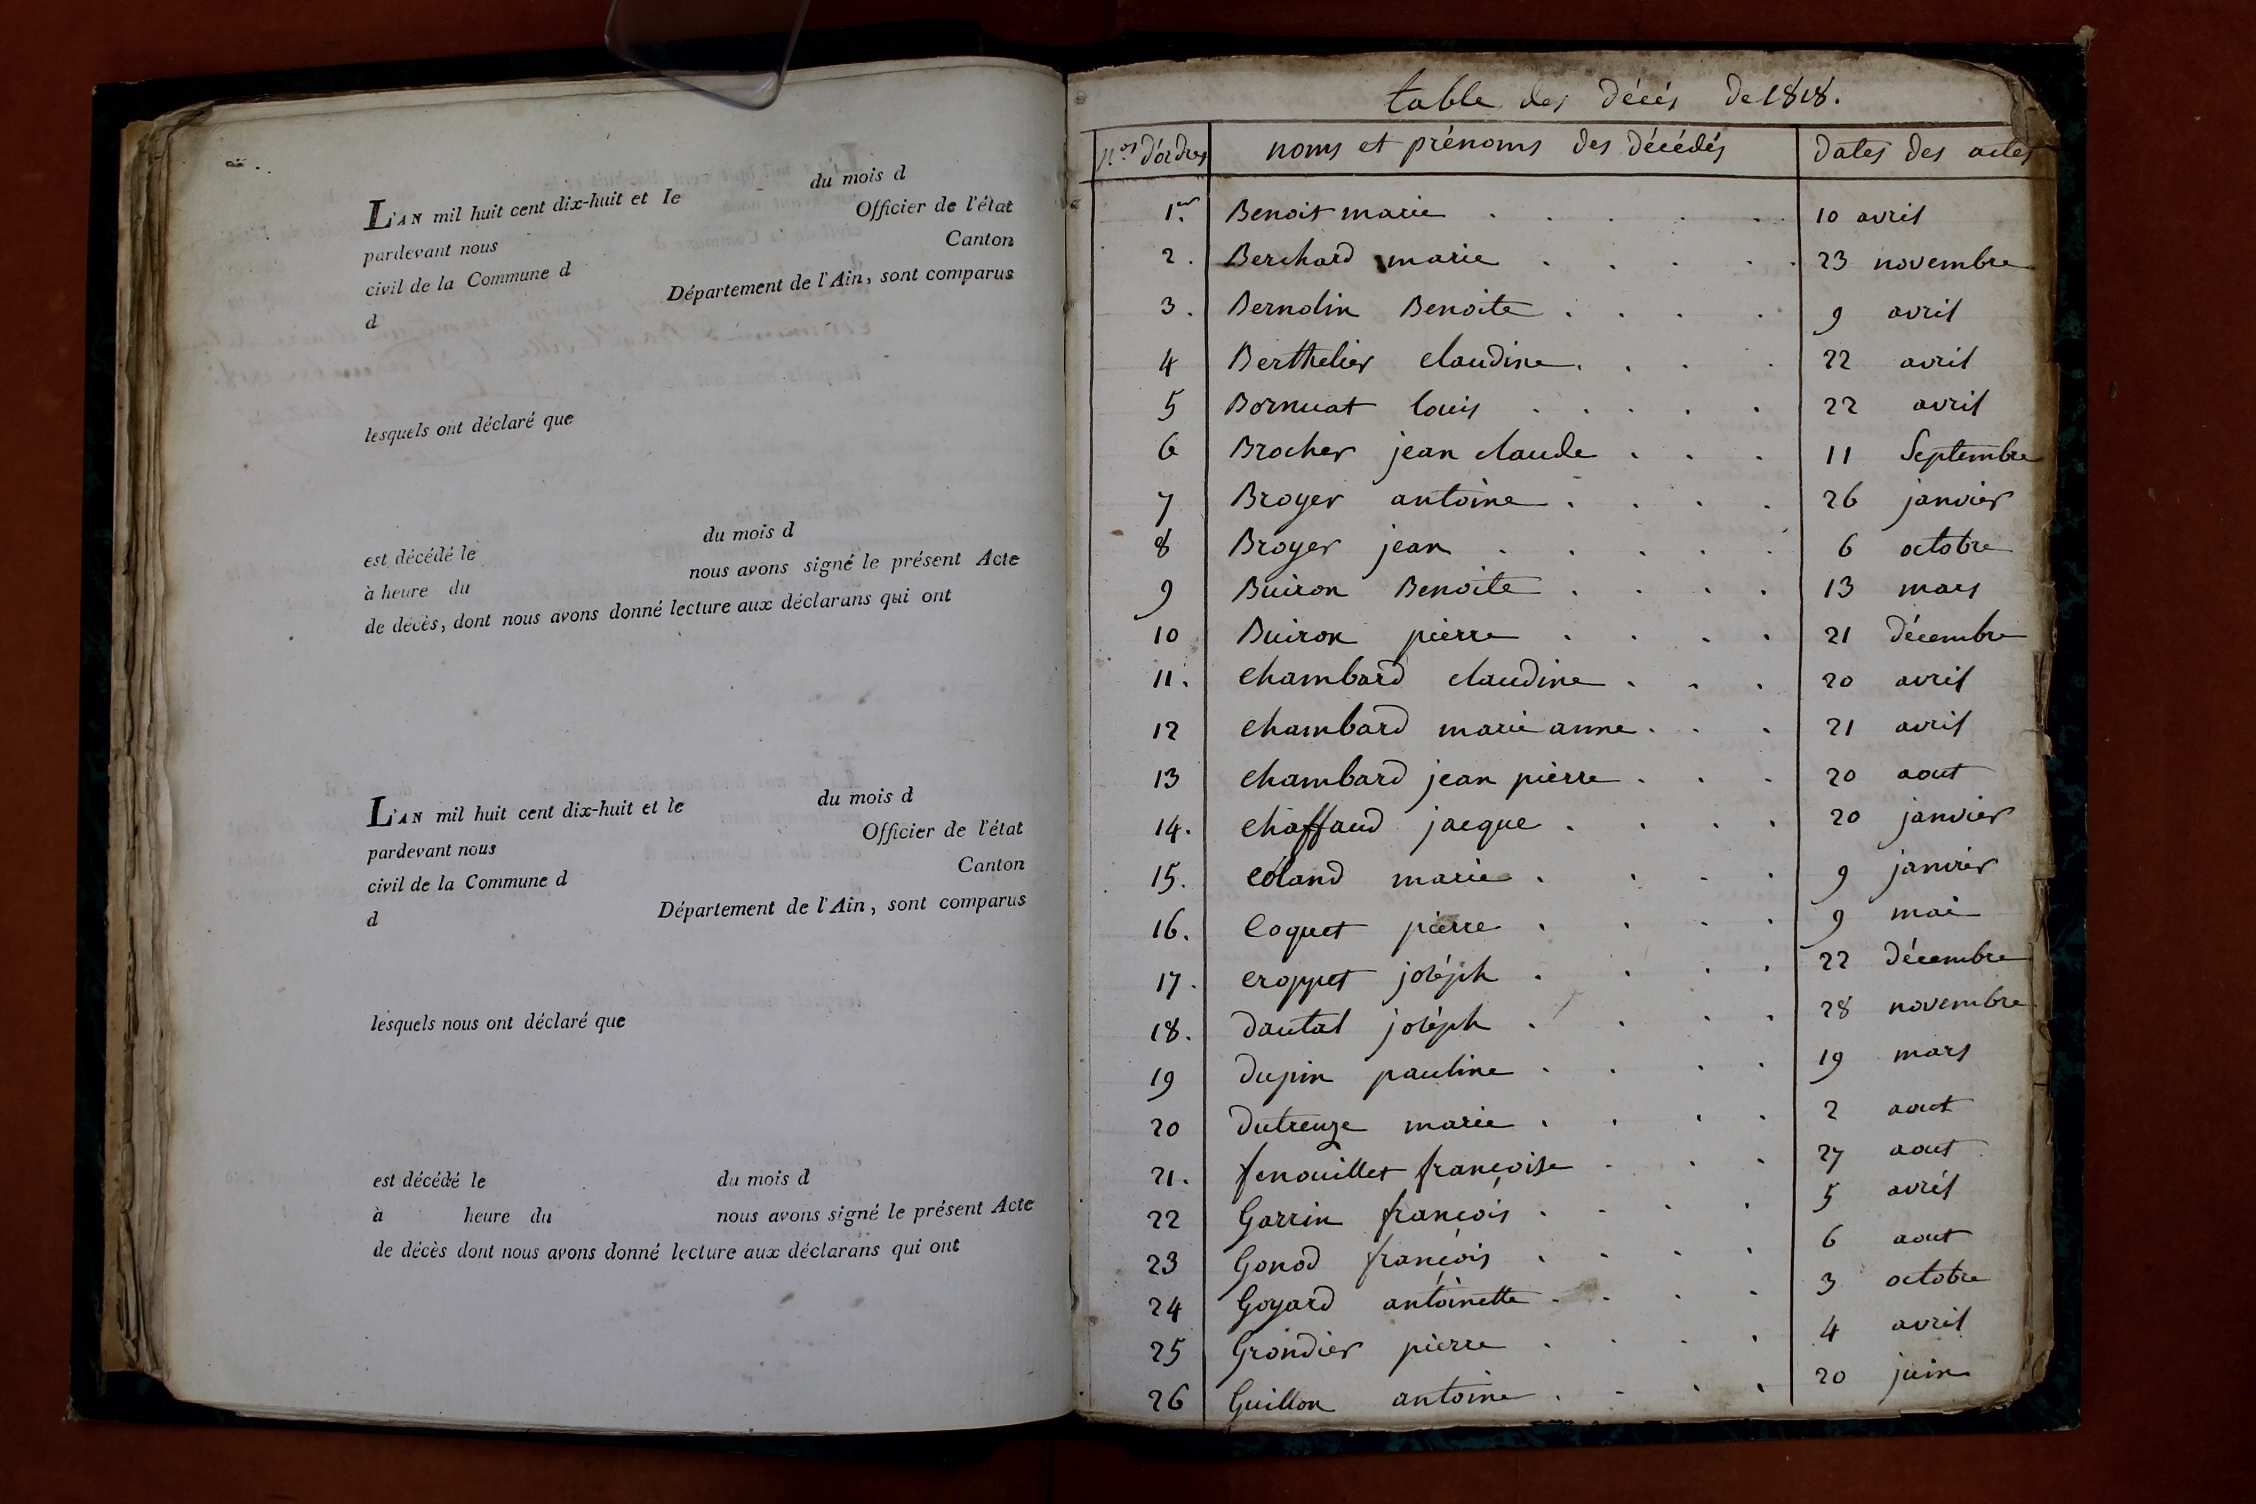 L'AN mil huit cent dix-huit et le du mois d
pardevant nous Officier de l'état
civil de la Commune d Canton
d Département de l'Ain, sont comparus
lesquels ont déclaré que
est décédé le du mois d
à heure du nous avons signé le présent Acte
de décès, dont nous avons donné lecture aux déclarans qui ont
L'AN mil huit cent dix-huit et le du mois d
pardevant nous Officier de l'état
civil de la Commune d Canton
d Département de l'Ain, sont comparus
lesquels nous ont déclaré que
est décédé le du mois d
à heure du nous avons signé le présent Acte
de décès dont nous avons donné lecture aux déclarans qui ont
table des décés de 1818.
nos d'ordres noms et prénoms des décédés dates des actes
1er. Benoit marie . . . . . 10 avril
2. Berchard marie . . . . . 23 novembre
3. Bernolin Benoite . . . . 9 avril
4 Berthelier claudine . . . . 22 avril
5 Bornuat louis . . . . . 22 avril
6 Brocher jean claude . . . 11 Septembre
7 Broyer antoine . . . . 26 janvier
8 Broyer jean . . . . . 6 octobre
9 Buiron Benoite . . . . 13 mars
10 Buiron pierre . . . . 21 décembre
11. chambard claudine . . . 20 avril
12 chambard marie anne . . . 21 avril
13 chambard jean pierre . . . 20 aout
14. chaffaud jacque . . . . 20 janvier
15. coland marie . . . . 9 janvier
16. Coquet pierre . . . . 9 mai
17. croppet joséph . . . . 22 décembre
18. dautal joséph . . . . 28 novembre
19 dupin pauline . . . . 19 mars
20 dutreuze marie . . . . 2 aout
21. fenouillet françoise . . . 27 aout
22 Garrin françois . . . . 5 avril
23 Gonod françois . . . . 6 aout
24 Goyard antoinette . . . . 3 octobre
25 Grondier pierre . . . . 4 avril
26 Guillon antoine . . . . 20 juin